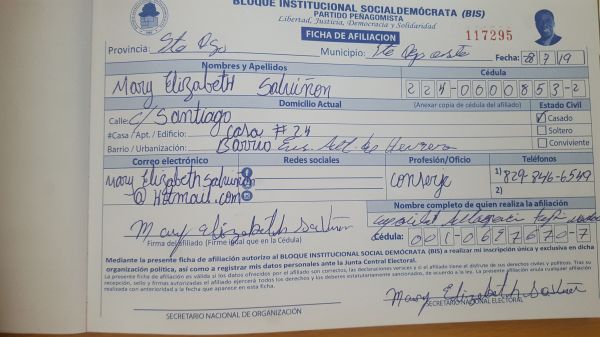 BLOQUE INSTITUCIONAL SOCIALDEMÓCRATA (BIS)
PARTIDO PEÑAGOMISTA
Libertad, Justicia, Democracia y Solidaridad
FICHA DE AFILIACION
117295
Provincia: Sto Dgo Municipio: Sto Dgo este Fecha: 28 7 19
Nombres y Apellidos Cédula
Mary Elizabeth Saluiñon 224-0000853-2
Domicilio Actual (Anexar copia de cédula del afiliado) Estado Civil
Calle: C/ Santiago Casado
#Casa / Apt. / Edificio: casa # 24 Soltero
Barrio / Urbanización: Barrio Herrera Conviviente
Correo electrónico Redes sociales Profesión/Oficio Teléfonos
Mary Elizabeth Saluiñon conserge 1) 829-846-6549
@ Hotmail.com 2)
Nombre completo de quien realiza la afiliación
Mary Elizabeth
Firma del afiliado (Firme igual que en la Cédula) Cédula: 001-0697670-7
Mediante la presente ficha de afiliación autorizo al BLOQUE INSTITUCIONAL SOCIAL DEMÓCRATA (BIS) a realizar mi inscripción única y exclusiva en dicha
organización política, así como a registrar mis datos personales ante la Junta Central Electoral.
La presente ficha de afiliación es válida si los datos ofrecidos por el afiliado son correctos, las declaraciones veraces y si el afiliado tiene el disfrute de sus derechos civiles y políticos. Tras su
recepción, sello y firmas autorizadas el afiliado ejercerá todos los derechos y los deberes estatutariamente sancionados, de acuerdo a la ley. La presente afiliación anula cualquier afiliación
realizada con anterioridad a la fecha que aparece en esta ficha.
Mary Elizabeth
SECRETARIO NACIONAL DE ORGANIZACIÓN SECRETARIO NACIONAL ELECTORAL